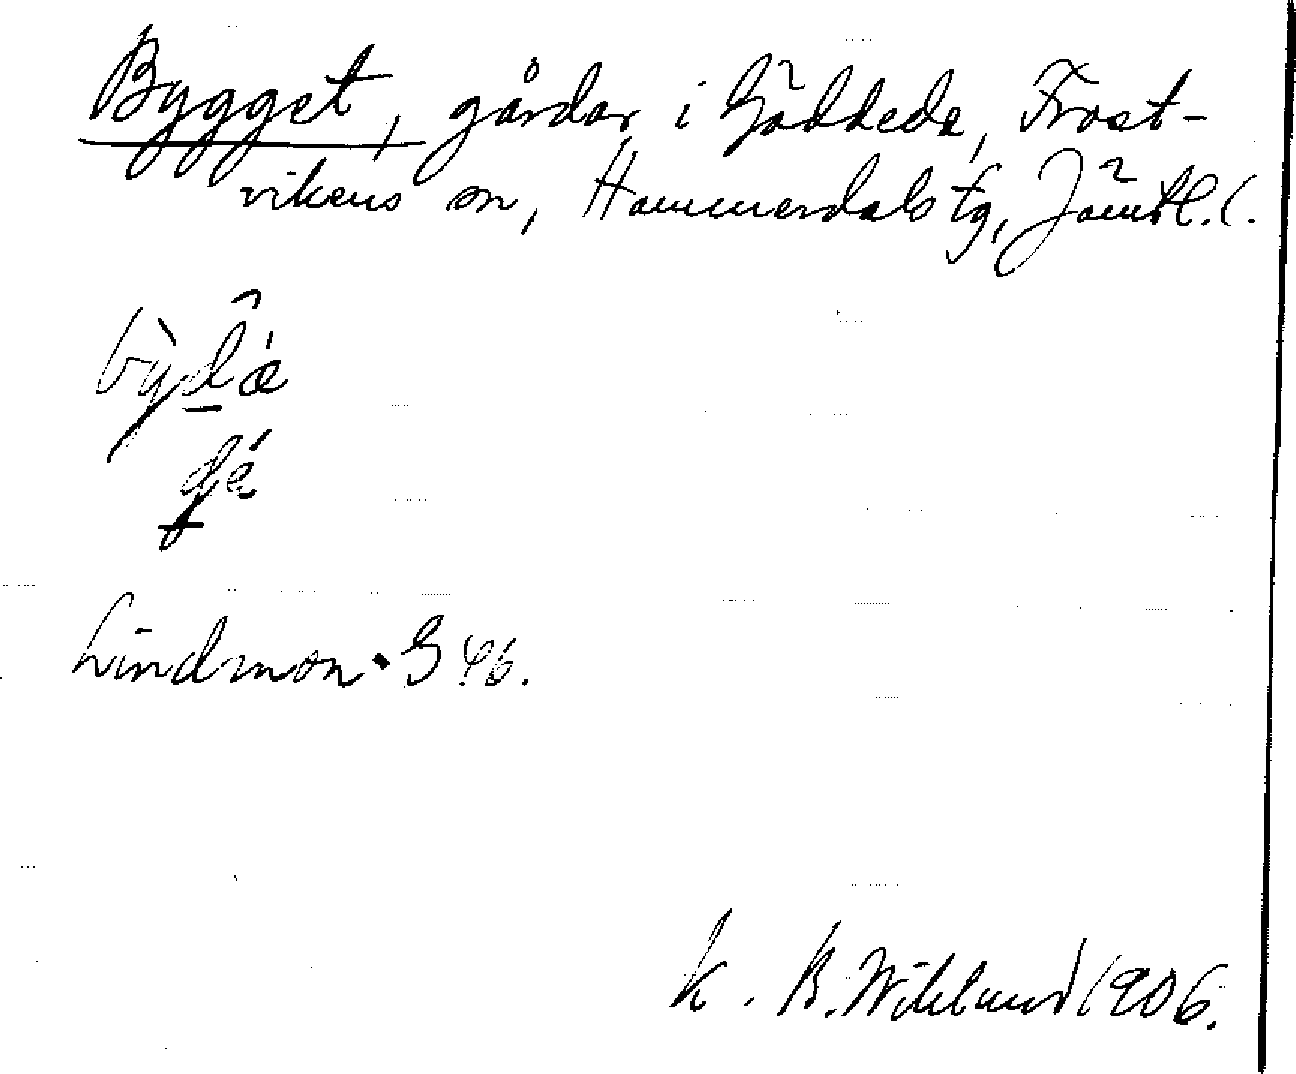 Bygget, gårdar i Gäddede, Frost-
vikens sn, Hammerdals tg, Jämtl. l.
Lindmon. G 46.
K. B. Wiklund 1906.